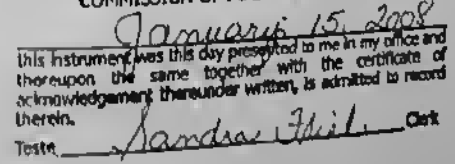 COMMISSION OF
January 15, 2008
this instrument was this day presented to me in my office and
thereupon the same together with the certificate of
acknowledgement thereunder written, is admitted to record
therein.
Teste Sandra Clerk